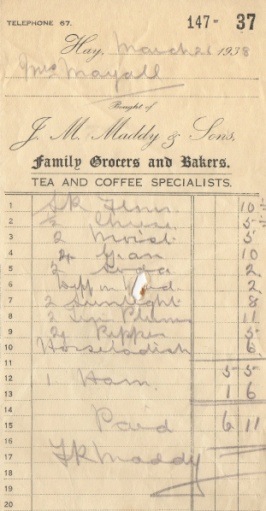 147- 37
TELEPHONE 67.
Hay, March 28 1938
Mrs Mayall
Bought of
J. M. Maddy & Sons,
Family Grocers and Bakers.
TEA AND COFFEE SPECIALISTS.
1 Sk Flour 10
2 ½ Cheese 5
3 2 Moist 5
4 Gran 10
5 2 Soda 2
6 2
7 2 Sunlight 8
8 2 Plums 11
9 Pepper 5
10 Horseradish 6
11
12 1 Ham 5 5
13 1 6
14
15 Paid 6 11
16
17 Maddy
18
19
20